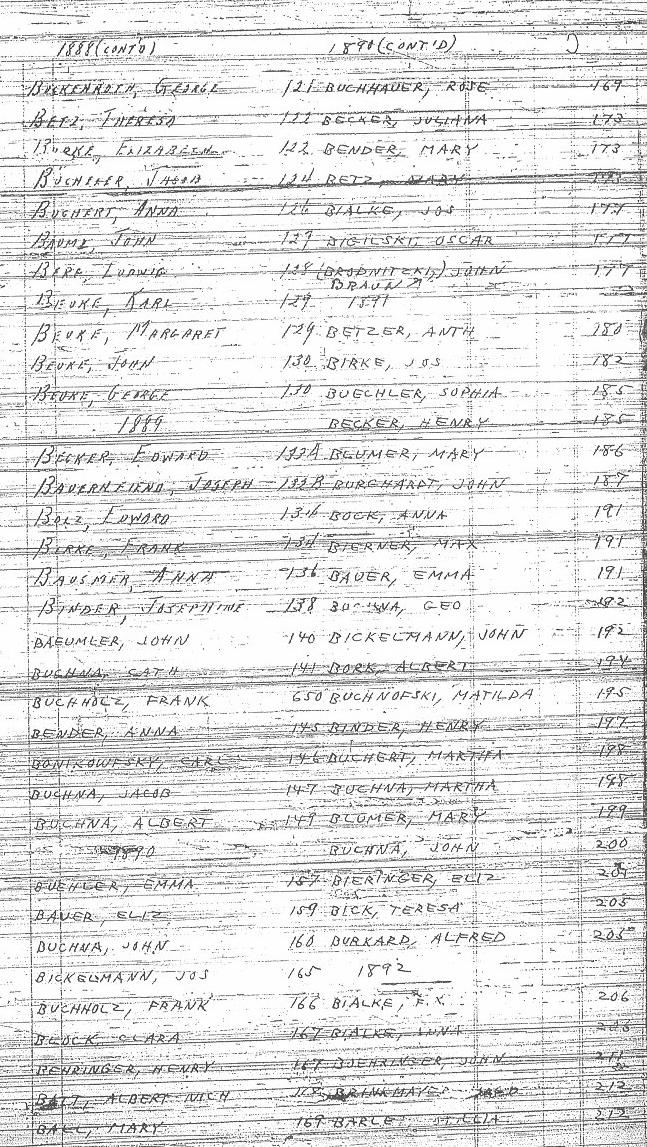 1888 (CONT'D)
BUCKENROTH, GEORGE 121
BETZ, THERESA 122
BURKE, ELIZABETH 122
BUCHELER, JACOB 124
BUCHERT, ANNA 126
BAUMZ, JOHN 127
LUDWIG 128
BEUKE, KARL 129
BEUKE, MARGARET 129
BEUKE, JOHN 130
BEUKE, GEORGE 130
1889
BECKER, EDWARD 132A
BAUERNFIEND, JOSEPH 132B
BOLZ, EDWARD
BIRKE, FRANK 134
BAUSMER, ANNA 136
BINDER, JOSEPHINE 138
BAEUMLER, JOHN 140
BUCHNA, CATH 141
BUCHHOLZ, FRANK 650
BENDER, ANNA 145
BONIKOWFSKY, CARL 146
BUCHNA, JACOB 147
BUCHNA, ALBERT 149
1890
BUEHLER, EMMA 157
BAUER, ELIZ 159
BUCHNA, JOHN 160
BICKELMANN, JOS 165
BUCHHOLZ, FRANK 166
BLOCK, CLARA 167
BEHRINGER, HENRY 167
ALBERT NICH
BALL, MARY 169
1890 (CONT'D)
BUCHHAUER, ROSE 169
BECKER, JULIANA 173
BENDER, MARY 173
BETZ, MARY
BIALKE, JOS 177
BIGILSKI, OSCAR 177
(BRODNITZKI) JOHN 177
BRAUN
1891
BETZER, ANTH 180
BIRKE, JOS 182
BUECHLER, SOPHIA 185
BECKER, HENRY 185
BLUMER, MARY 186
BURCHARDT, JOHN 187
BOCK, ANNA 191
BIERNER, MAX 191
BAUER, EMMA 191
GEO 192
BICKELMANN, JOHN 192
BORK, ALBERT 194
BUCHNOFSKI, MATILDA 195
BINDER, HENRY 197
BUCHERT, MARTHA 198
BUCHNA, MARTHA 198
BLUMER, MARY 199
BUCHNA, JOHN 200
BIERINGER, ELIZ
BICK, TERESA 205
BURKARD, ALFRED 205
1892
BIALKE, F.X. 206
BIALKE, ANNA
BOEHRINGER, JOHN 211
BRINKMAYER 212
212